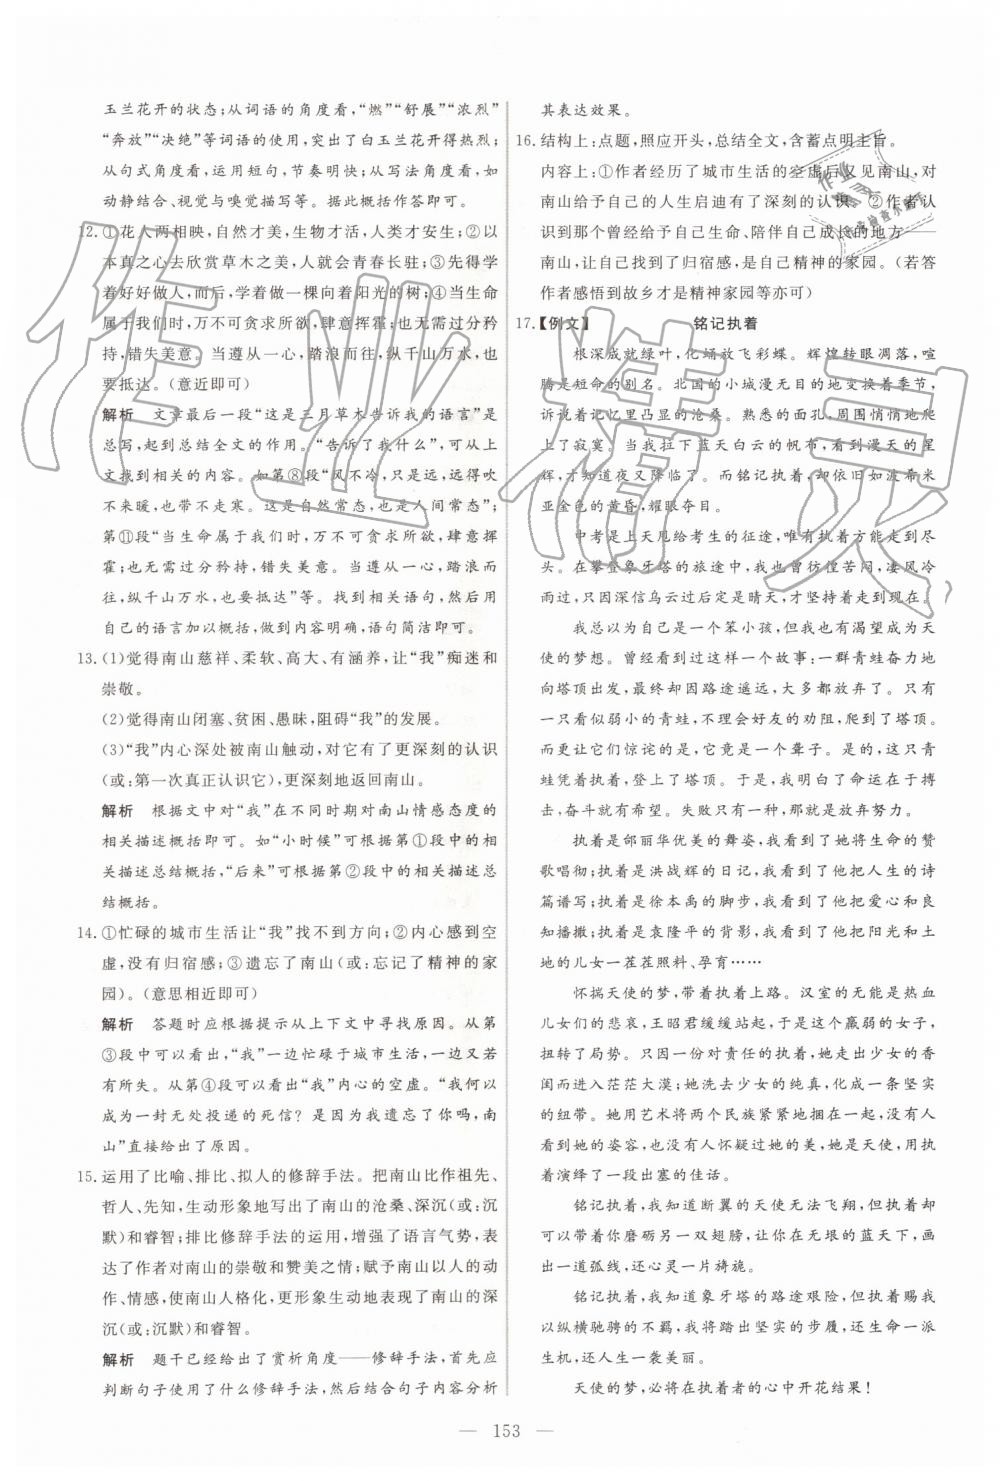 玉兰花开的状态;从词语的角度看,“燃”“舒展”“浓烈”
“奔放”“决绝”等词语的使用,突出了白玉兰花开得热烈;
从句式角度看,运用短句,节奏明快;从写法角度看,如
动静结合、视觉与嗅觉描写等。据此概括作答即可。
12.①花人两相映,自然才美,生物才佳,人类才安生;②以
本真之心去欣赏草木之美,人类将青春长驻;③先得学
着好好做人,而后,学着做一棵向着阳光的树;④当生命
属于我们时,万不可贪求所欲,肆意挥霍;也无需过分矜
持,错失美意。当遵从一心,踏浪而往,纵千山万水,也
要抵达。(意近即可)
解析 文章最后一段“这是三月草木告诉我的语言”是
总写,起到总结全文的作用。“告诉了我什么”,可从上
文找到相关的内容。如第⑧段“风不冷,只是远,远得吹
不来暖,也带不走寒。这是自然常态,也是人间常态”;
第⑪段“当生命属于我们时,万不可贪求所欲,肆意挥
霍,也无需过分矜持,错失美意。当遵从一心,踏浪而
往,纵千山万水,也要抵达”等。找到相关语句,然后用
自己的语言加以概括,做到内容明确,语句简洁即可。
13.(1)觉得南山慈祥、柔软、高大、有涵养,让“我”痴迷和
崇敬。
(2)觉得南山闭塞、贫困、愚昧,阻碍“我”的发展。
(3)“我”内心深处被南山触动,对它有了更深刻的认识
(或:第一次真正认识它),更深刻地返回南山。
解析 根据文中对“我”在不同时期对南山情感态度的
相关描述概括即可。如“小时候”可根据第①段中的相
关描述总结概括,“后来”可根据第②段中的相关描述总
结概括。
14.①忙碌的城市生活让“我”找不到方向;②内心感到空
虚,没有归宿感;③遗忘了南山(或:忘记了精神的家
园)。(意思相近即可)
解析 答题时应根据提示从上下文中寻找原因。从第
③段中可以看出,“我”一边忙碌于城市生活,一边又若有
所失。从第④段可以看出“我”内心的空虚。“我何以
成为一封无处投递的死信?是因为我遗忘了你吗,南
山”直接给出了原因。
15.运用了比喻、排比、拟人的修辞手法。把南山比作祖先、
哲人、先知,生动形象地写出了南山的沧桑、深沉(或:沉
默)和睿智;排比修辞手法的运用,增强了语言气势,表
达了作者对南山的崇敬和赞美之情;赋予南山以人的动
作、情感,使南山人格化,更形象生动地表现了南山的深
沉(或:沉默)和睿智。
解析 题干已经给出了赏析角度——修辞手法,首先应
判断句子使用了什么修辞手法,然后结合句子内容分析
其表达效果。
16.结构上:点题,照应开头,总结全文,含蓄点明主旨。
内容上:①作者经历了城市生活的空虚后又见南山,对
南山给予自己的人生启迪有了深刻的认识。②作者认
识到那个曾经给予自己生命、陪伴自己成长的地方——
南山,让自己找到了归宿感,是自己精神的家园。(若答
作者感悟到故乡才是精神家园等亦可)
17.【例文】 铭记执着
根深成就绿叶,化蛹放飞彩蝶。辉煌转眼凋落,喧
腾是短命的别名。北国的小城漫无目的地变换着季节,
诉说着记忆里凸显的沧桑。熟悉的面孔,周围悄悄地爬
上了寂寞。当我拉下蓝天白云的帆布,看到漫天的星
辉,才知道夜又降临了。而铭记执着,却依旧如波希米
亚金色的黄昏,耀眼夺目。
中考是上天甩给考生的征途,唯有执着方能开疆拓
土。在攀登象牙塔的旅途中,我也曾彷徨苦闷,凄风冷
雨过。但因深信乌云过后定是晴天,才坚持到现在。
我总以为自己是一个笨小孩,但也有渴望成为天
使的梦想。曾经看到过这样一个故事:一群青蛙奋力地
向塔顶出发,最终却因路途遥远,大多都放弃了。只有
一只看似弱小的青蛙,不理会好友的劝阻,爬到了塔顶。
而让它们惊诧的是,它竟是一个聋子。是的,这只青
蛙凭着执着,登上了塔顶。于是我明白了命运在于搏
击,奋斗就有希望。失败只有一种,那就是放弃努力。
执着是邰丽华优美的舞姿,我看到了她将生命的赞
歌唱彻;执着是洪战辉的执着,我看到了他把人生的诗
篇谱写;执着是徐本禹的脚步,我看到了他把爱心和良
知播撒;执着是袁隆平的背影,我看到了他把阳光和土
地的儿女一茬茬照料、孕育……
怀揣天使的梦,带着执着上路。汉室的无能是热血
儿女们的悲哀,王昭君缓缓站起,于是这个羸弱的女子,
扭转了局势。只因一份对责任的执着,她走出少女的香
闺而进入茫茫大漠;她洗去少女的纯真,化作一条坚实
的纽带。她用艺术将两个民族紧紧地捆在一起,没有人
看到她的姿容,也没有人怀疑过她的美,她是天使,用执
着演绎了一段出塞的佳话。
铭记执着,我知道断翼的天使无法飞翔,但执着却
可以带着你磨砺另一双翅膀,让你在无垠的蓝天下,画
出一道弧线,还心灵一片旖旎。
铭记执着,我知道象牙塔的路途艰险,但执着赐我
以纵横驰骋的不羁,我将踏出坚实的步履,还生命一派
生机,还人生一袭美丽。
天使的梦,必将在执着者的心中开花结果!
— 153 —
作业精灵